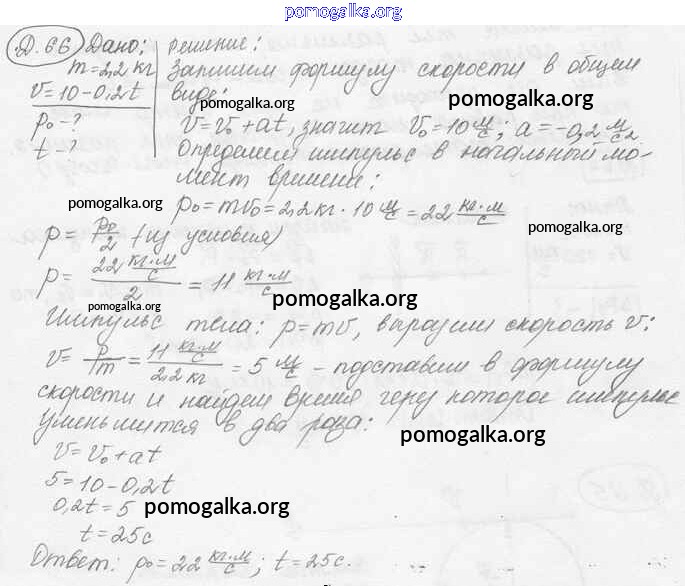 pomogalka.org
Д.66 Дано: Решение:
m = 2,2 кг Запишем формулу скорости в общем
v = 10 - 0,2t виде:
pomogalka.org pomogalka.org
p₀ - ? v = v₀ + at, значит v₀ = 10 м/с; a = -0,2 м/с²
t - ? Определяем импульс в начальный мо-
мент времени:
pomogalka.org p₀ = mv₀ = 2,2 кг · 10 м/с = 22 кг·м/с
p = p₀/2 (из условия) pomogalka.org
p = 22 кг·м/с / 2 = 11 кг·м/с
pomogalka.org pomogalka.org
Импульс тела: p = mv, выразим скорость v:
v = p/m = 11 кг·м/с / 2,2 кг = 5 м/с - подставим в формулу
скорости и найдем время через которое импульс
уменьшится в два раза:
pomogalka.org
v = v₀ + at
5 = 10 - 0,2t
0,2t = 5 pomogalka.org
t = 25 с
Ответ: p₀ = 22 кг·м/с; t = 25 с.